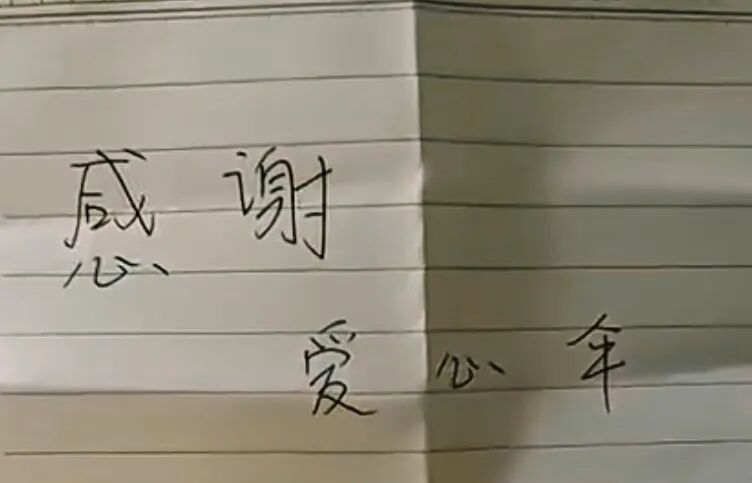 感谢
爱心伞